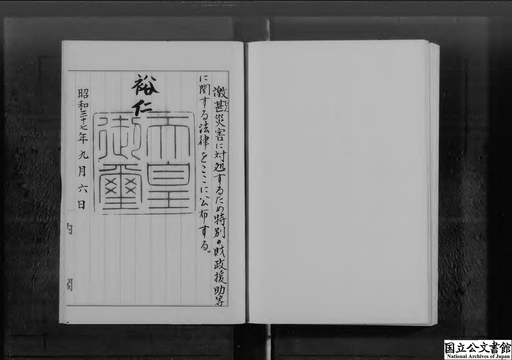 激甚災害に対処するため特別の財政援助等
に関する法律をここに公布する。
裕仁
天皇
御璽
昭和三十七年九月六日
国立公文書館
National Archives of Japan